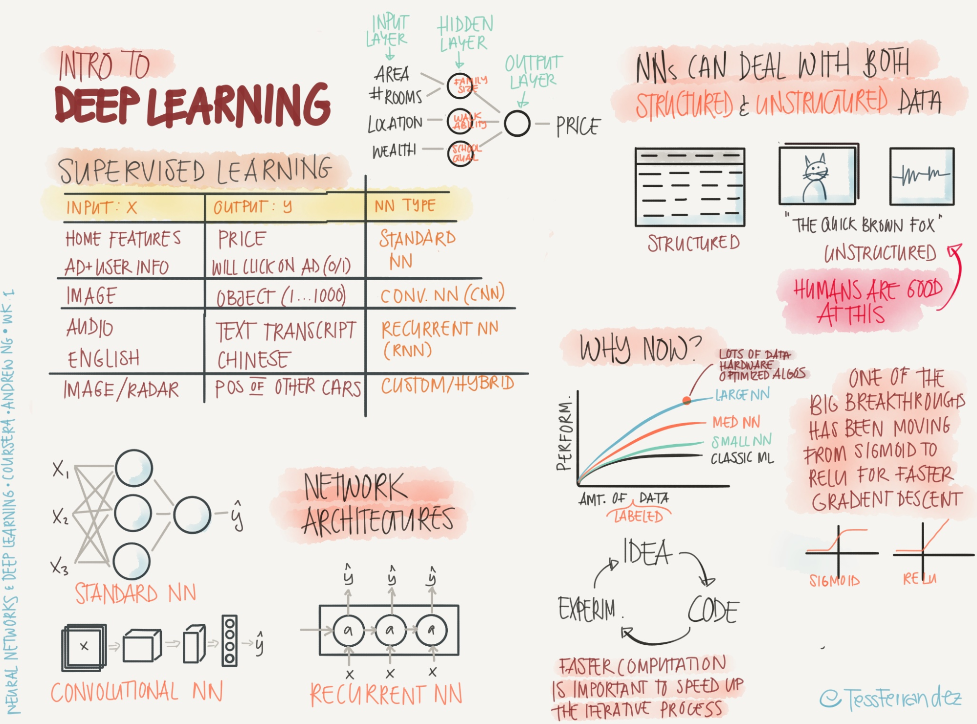 INTRO TO
DEEP LEARNING
INPUT
LAYER
HIDDEN
LAYER
OUTPUT
LAYER
AREA
# ROOMS
LOCATION
WEALTH
FAMILY
SIZE
WALK
ABILITY
SCHOOL
QUAL
PRICE
SUPERVISED LEARNING
INPUT: X OUTPUT: Y NN TYPE
HOME FEATURES PRICE STANDARD
AD+USER INFO WILL CLICK ON AD (0/1) NN
IMAGE OBJECT (1...1000) CONV. NN (CNN)
AUDIO TEXT TRANSCRIPT RECURRENT NN
ENGLISH CHINESE (RNN)
IMAGE/RADAR POS OF OTHER CARS CUSTOM/HYBRID
NEURAL NETWORKS & DEEP LEARNING • COURSERA • ANDREW NG • WK 1
X1
X2
X3
ŷ
STANDARD NN
X
ŷ
CONVOLUTIONAL NN
NETWORK
ARCHITECTURES
ŷ ŷ ŷ
a a a
X X X
RECURRENT NN
NNs CAN DEAL WITH BOTH
STRUCTURED & UNSTRUCTURED DATA
STRUCTURED
"THE QUICK BROWN FOX"
UNSTRUCTURED
HUMANS ARE GOOD
AT THIS
WHY NOW?
LOTS OF DATA
HARDWARE
OPTIMIZED ALGOS
LARGE NN
MED NN
SMALL NN
CLASSIC ML
PERFORM.
AMT. OF DATA
LABELED
IDEA
CODE
EXPERIM.
FASTER COMPUTATION
IS IMPORTANT TO SPEED UP
THE ITERATIVE PROCESS
ONE OF THE
BIG BREAKTHROUGHS
HAS BEEN MOVING
FROM SIGMOID TO
RELU FOR FASTER
GRADIENT DESCENT
SIGMOID
RELU
@TessFerrandez